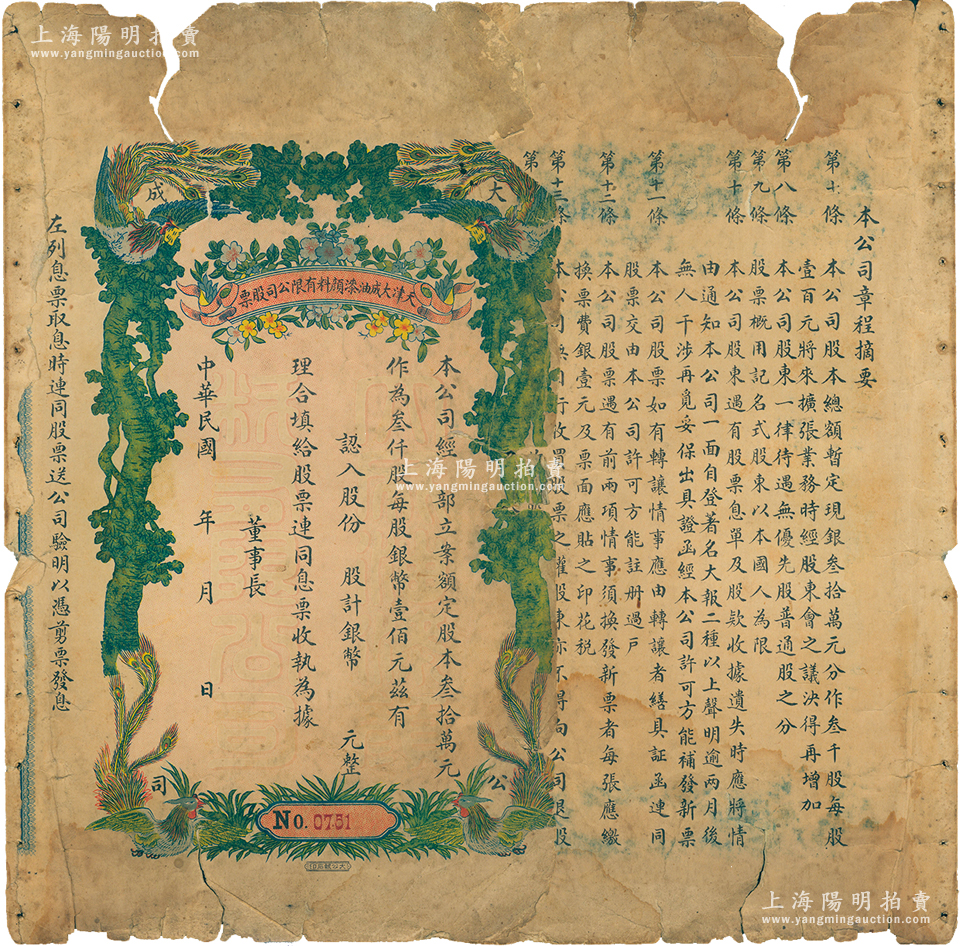 上海陽明拍賣
www.yangmingauction.com
本公司章程摘要
第七條 本公司股本總額暫定現銀叁拾萬元分作叁千股每股
壹百元將來擴張業務時經股東會之議決得再增加
第八條 本公司股東一律待遇無優先股普通股之分
第九條 股票概用記名式股東以本國人為限
第十條 本公司股東遇有股票息單及股款收據遺失時應將情
由通知本公司一面自登著名大報二種以上聲明逾兩月後
無人干涉再覓妥保出具證函經本公司許可方能補發新票
第十一條 本公司股票如有轉讓情事應由轉讓者繕具証函連同
股票交由本公司許可方能註册過戶
第十二條 本公司股票遇有前兩項情事須換發新票者每張應繳
換票費銀壹元及票面應貼之印花稅
第十三條 本公司無自行收買股票之權股東亦不得向公司退股
第
大成
公司
天津大成油漆顏料有限公司股票
本公司經 部立案額定股本叁拾萬元
作為叁仟股每股銀幣壹佰元茲有
認入股份 股計銀幣 元整
理合填給股票連同息票收執為據
董事長
中華民國 年 月 日
No. 0751
左列息票取息時連同股票送公司驗明以憑剪票發息
上海陽明拍賣
www.yangmingauction.com
上海陽明拍賣
www.yangmingauction.com